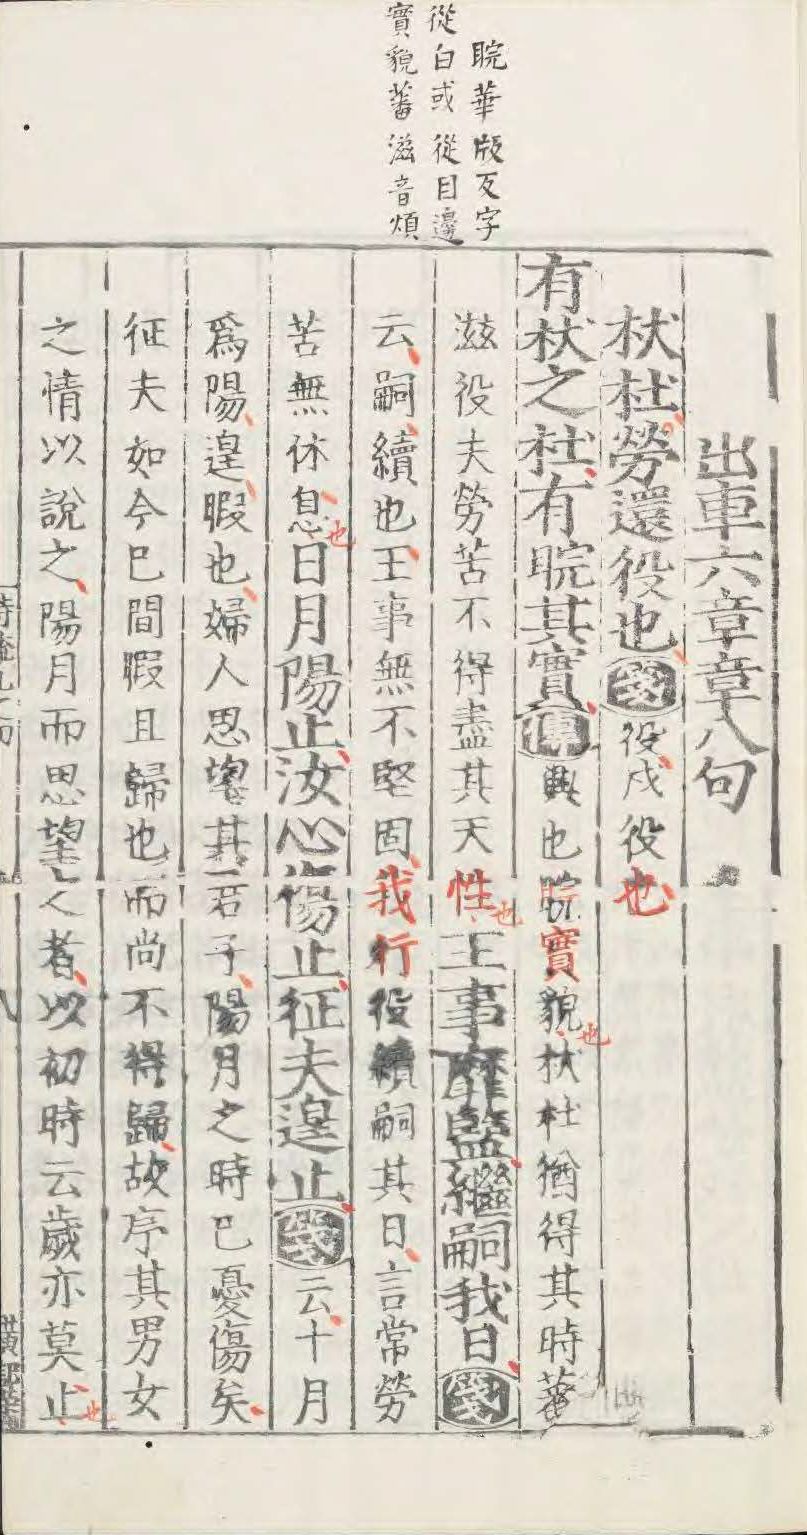 睆華版反字
從白或從目邊
實貌蕃滋音煩
出車六章章八句
杕杜勞還役也箋役戍役也
有杕之杜有睆其實傳興也睆實貌也杕杜猶得其時蕃
滋役夫勞苦不得盡其天性也王事靡盬繼嗣我日箋
云嗣續也王事無不堅固我行役續嗣其日言常勞
苦無休息也日月陽止汝心傷止征夫遑止箋云十月
爲陽遑暇也婦人思望其君子陽月之時巳憂傷矣
征夫如今巳間暇且歸也而尚不得歸故序其男女
之情以說之陽月而思望之者以初時云歲亦莫止也